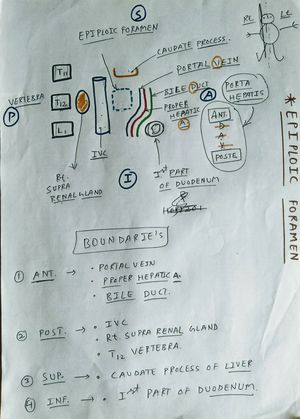 S
Rt. Lt.
EPIPLOIC FORAMEN
CAUDATE PROCESS.
PORTAL VEIN
BILE DUCT
PROPER
HEPATIC
A
A
PORTA
HEPATIS
ANT.
D
A
V
POSTE.
VERTEBRA
P
T11
T12
L1
IVC
Rt.
SUPRA
RENAL GLAND
I
Ist PART
OF DUODENUM
* EPIPLOIC FORAMEN
BOUNDARIE's
① ANT. → • PORTAL VEIN
• PROPER HEPATIC A.
• BILE DUCT.
② POST. → • IVC
• Rt. SUPRA RENAL GLAND
• T12 VERTEBRA.
③ SUP. → • CAUDATE PROCESS OF LIVER
④ INF. → • Ist PART OF DUODENUM.